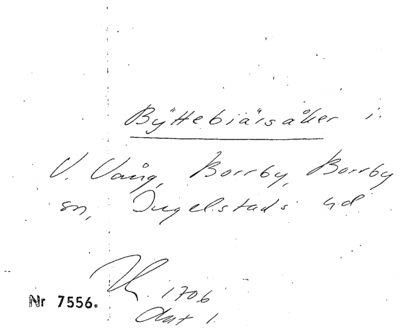 Byttebiärsåker i
V. Vång, Borrby, Borrby
sn, Ingelstads hd
1706
Nr 7556.